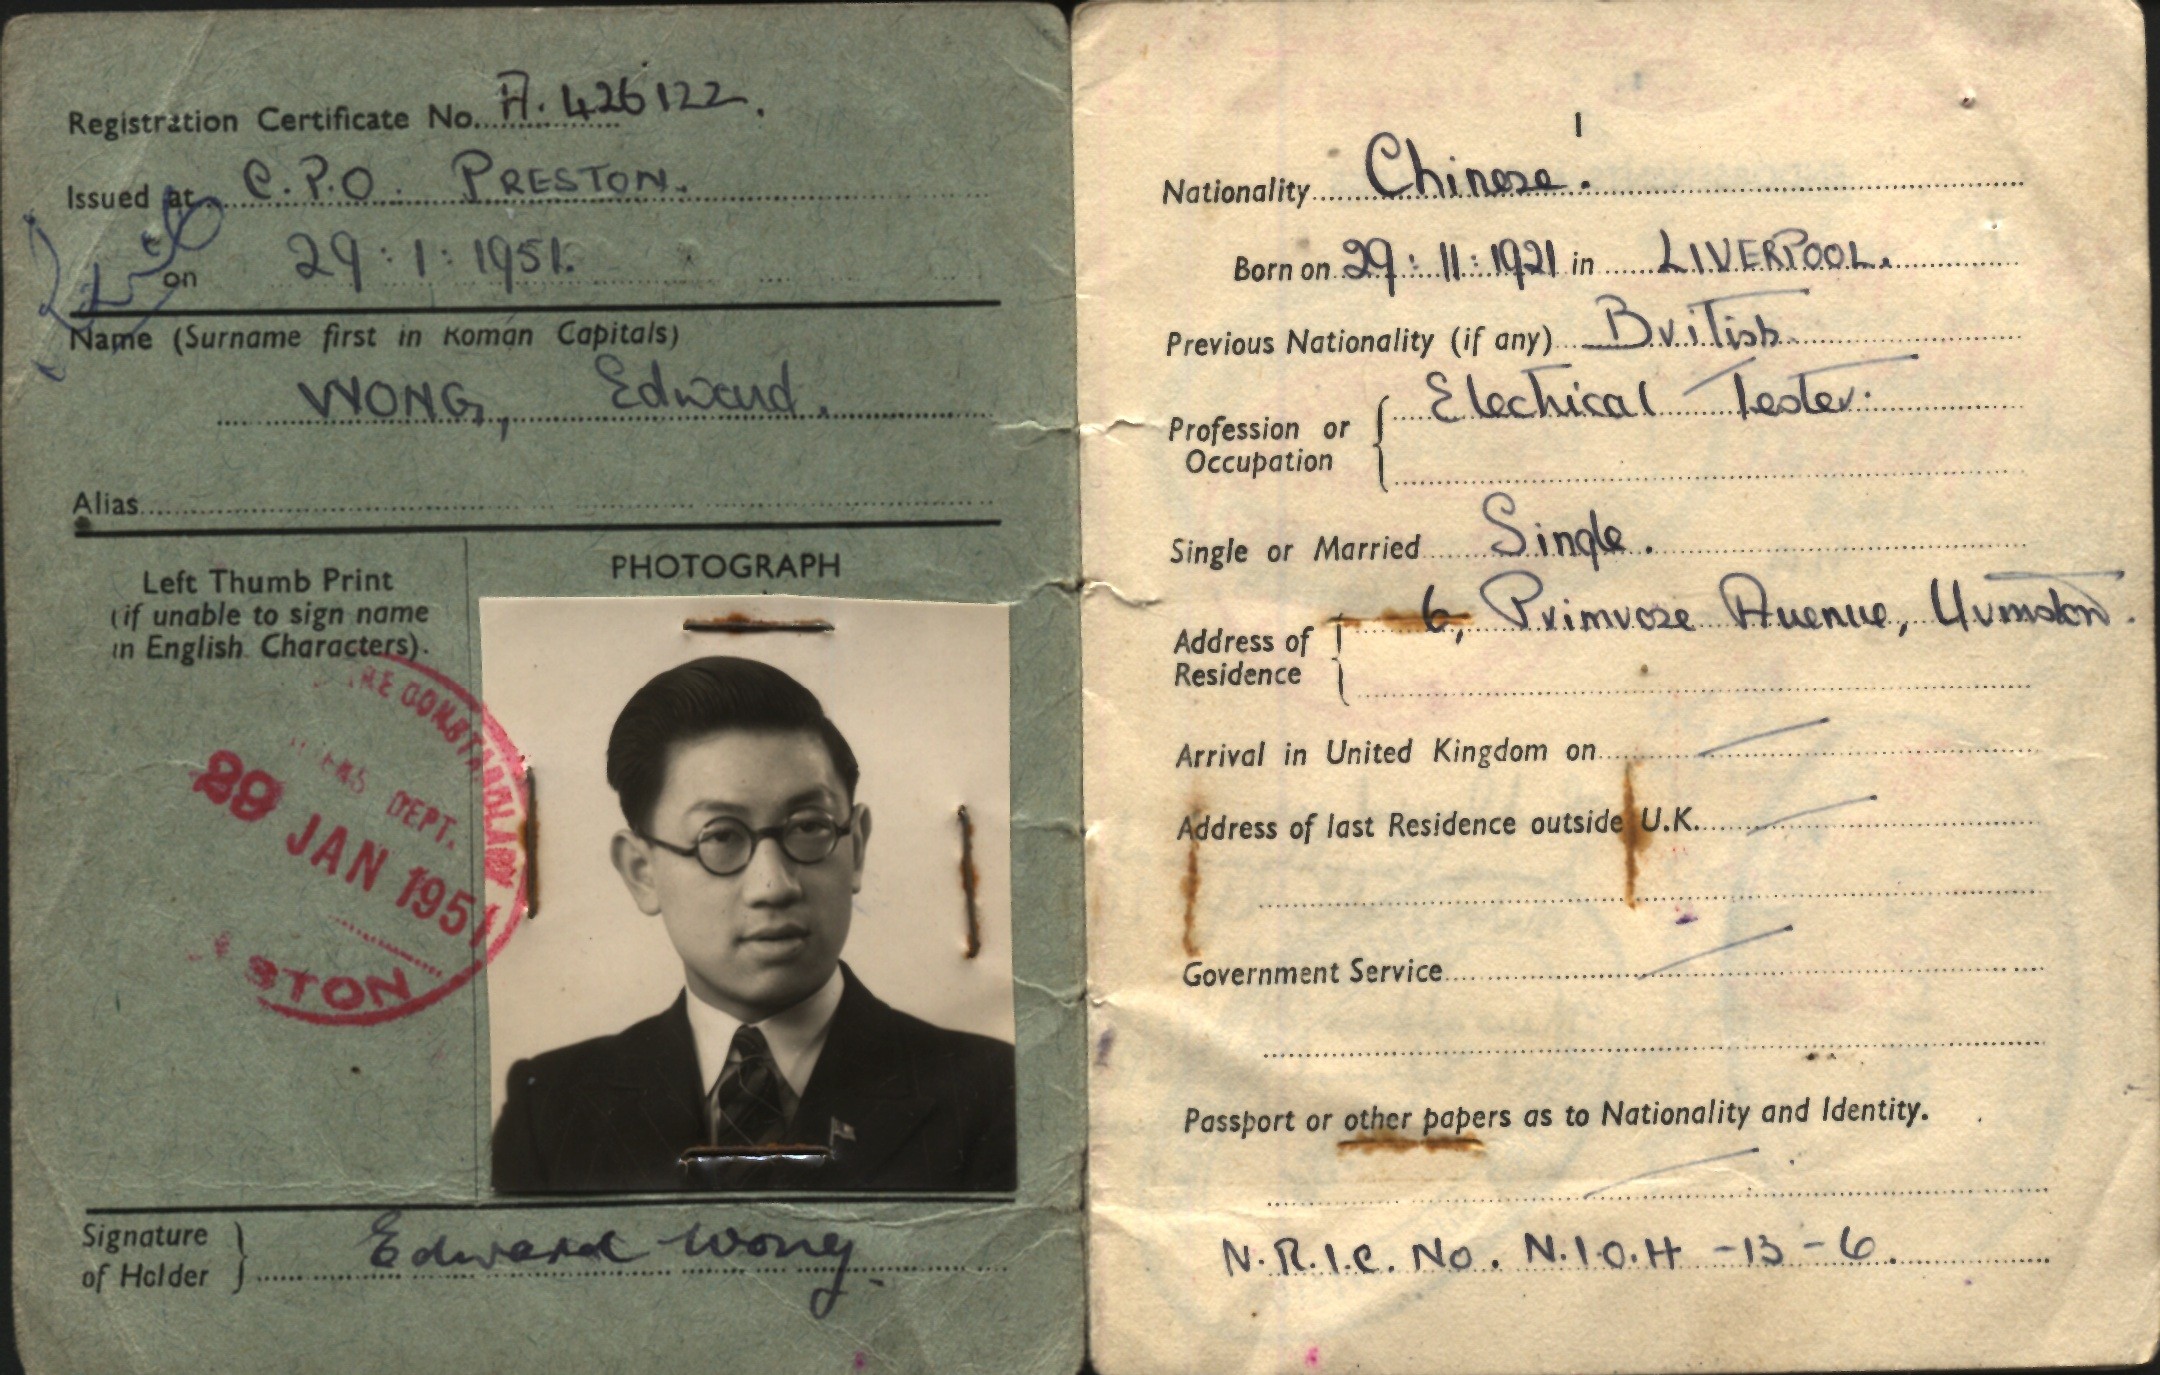 Registration Certificate No. A. 426122.
Issued at C.P.O. PRESTON.
on 29:1:1951.
Name (Surname first in Roman Capitals)
WONG, Edward.
Alias
Left Thumb Print
(if unable to sign name
in English Characters).
PHOTOGRAPH
DEPT.
29 JAN 1951
STON
Signature
of Holder
Edward Wong.
1
Nationality Chinese.
Born on 29:11:1921 in LIVERPOOL.
Previous Nationality (if any) British.
Profession or
Occupation
Electrical Tester.
Single or Married Single.
Address of
Residence
6, Primrose Avenue, Urmston.
Arrival in United Kingdom on
Address of last Residence outside U.K.
Government Service
Passport or other papers as to Nationality and Identity.
N.R.I.C. No. N.I.O.H -13-6.